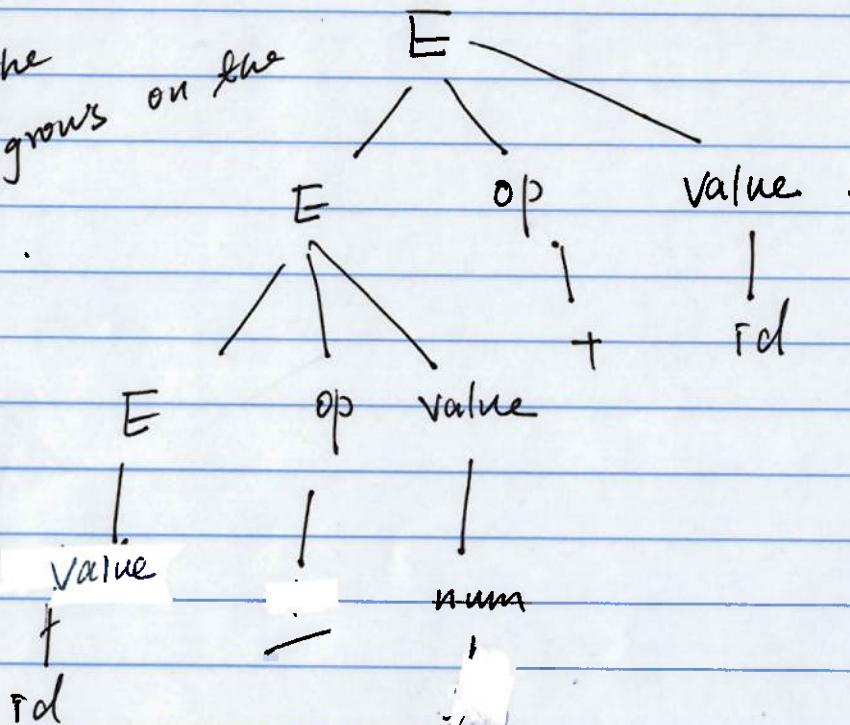 E
he
grows on the
E op value
+ id
E op value
value
– num
id